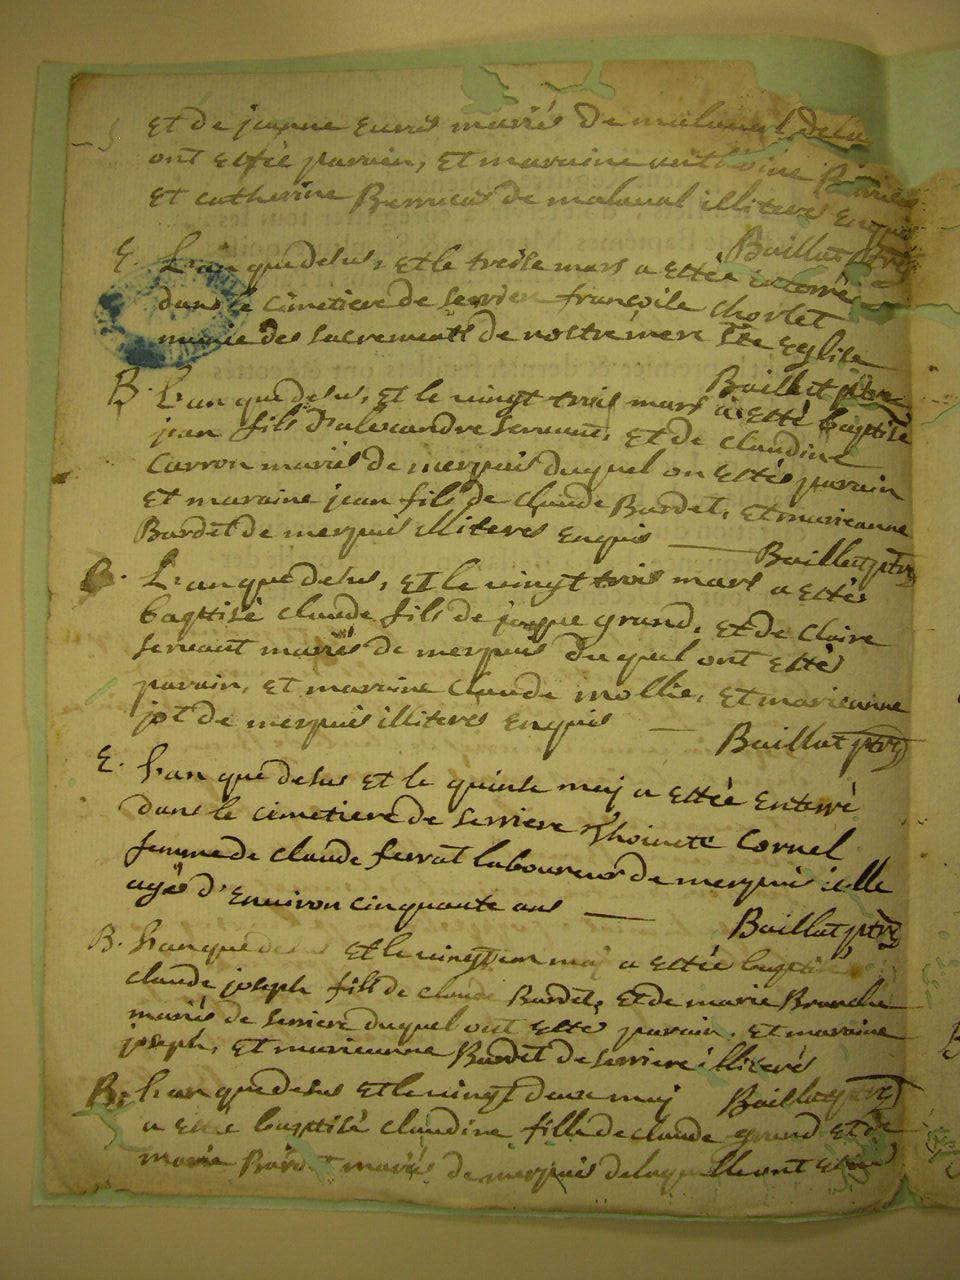 et de jeanne Eurré mariés de malaval dela
ont estée parain, et maraine anthoine
et catherine de malaval illiteres Enquis
Baillat ptre
E. L'an que desus, et le treise mars a estée enterré
dans le cimetiere de serriere françoise Chorlet
munie des sacrements de nostre mere Ste Eglise
Baillat ptre
B. L'an que desus, et le vingt trois mars a esté baptise
jean fils d'alexandre servant, et de claudine
Carron mariés de merpuis duquel on estés parain
et maraine jean fils de claude Bardet, et marieanne
Bardet de merpuis illiteres enquis
Baillat ptre
B. L'an que desus, et le vingt trois mars a estés
baptisé claude fils de jacque grand, et de claire
servant mariés de merpuis duquel ont estés
parain, et maraine claude mollie, et marieanne
jot de merpuis illiteres enquis
Baillat ptre
E. L'an que desus et le quinse maj a estée enterré
dans le cimetiere de serriere Thoinete Cornel
femme de claude ferrat laboureur de merpuis icelle
agés d'environ cinquante ans
Baillat ptre
B. L'an que de et le vingt un maj a estée baptisé
claude joseph fils de claude Bardet, et de marie Branche
mariés de serriere duquel ont estés parain, et maraine
joseph, et marieanne Bardet de serriere illiterés
Baillat ptre
B. L'an que desus et le vingt deux maj
a estée baptisé claudine fille de claude grand et de
marie Bardet mariés de merpuis delaquelle ont estée